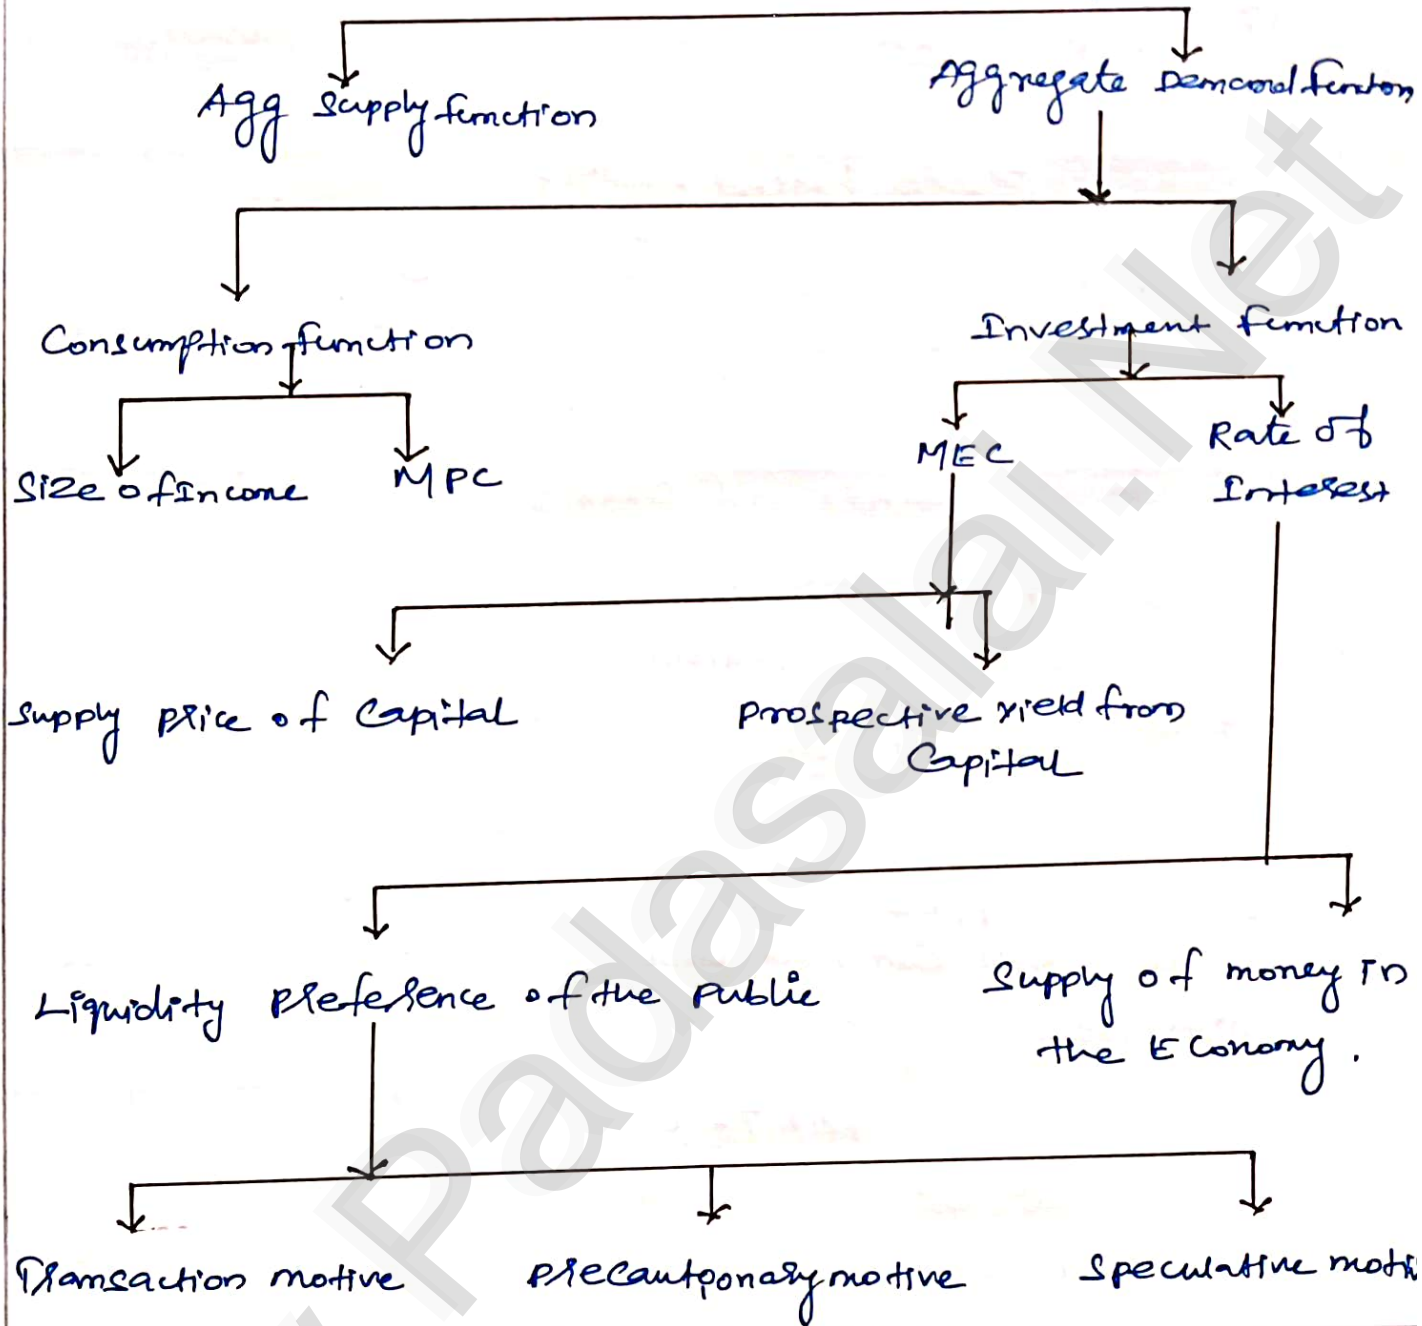 Agg Supply function
Aggregate Demand function
Consumption function
Investment function
Size of Income
MPC
MEC
Rate of
Interest
Supply price of Capital
Prospective yield from
Capital
Liquidity preference of the Public
Supply of money in
the Economy.
Transaction motive
precautionary motive
Speculative moti
Padasalai.Net